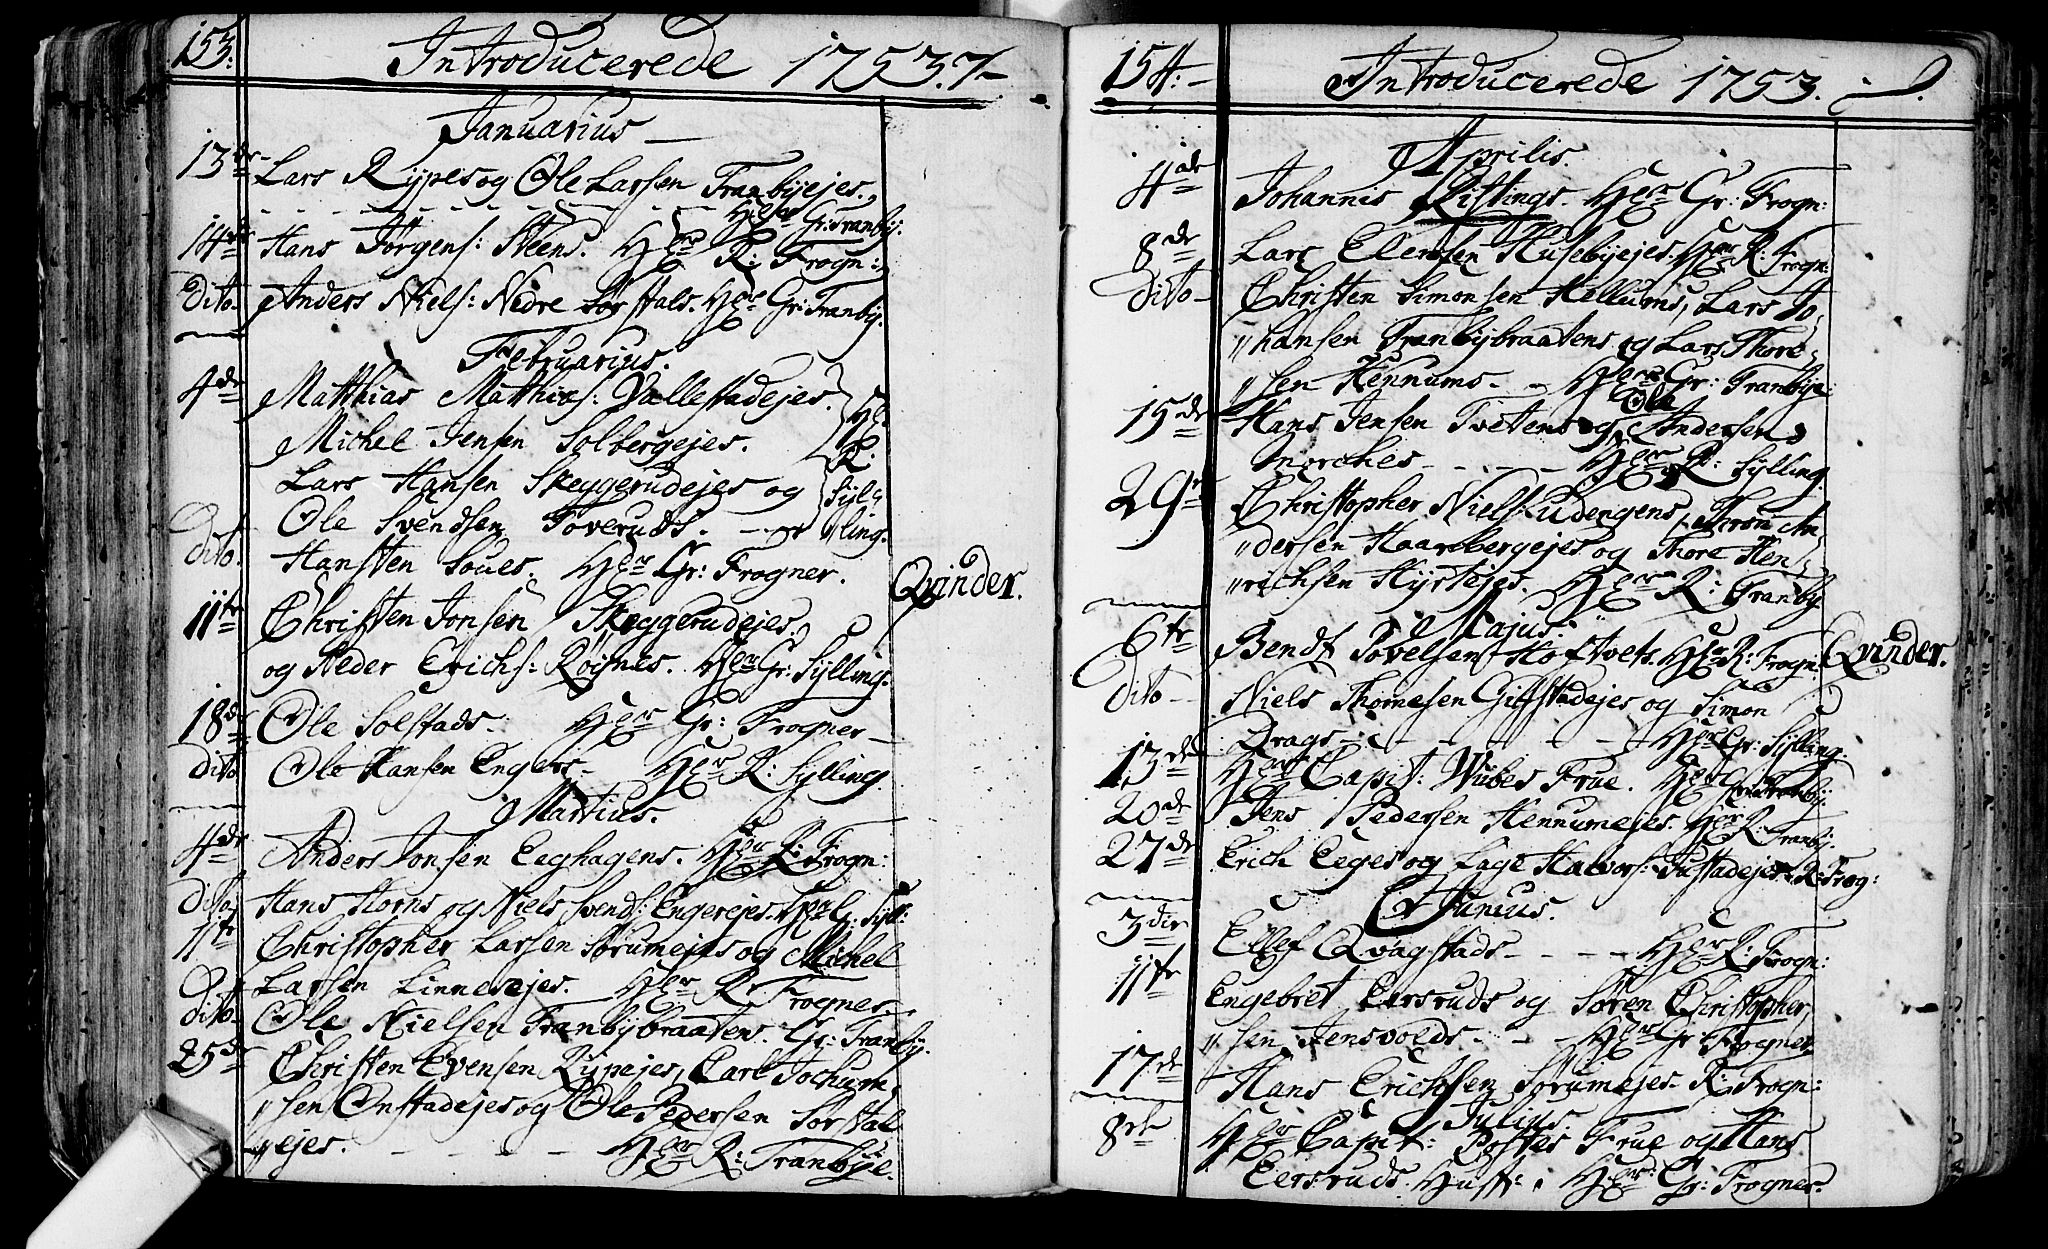 153. Introducerede 1753.
Januarius
13de Lars Rÿpes og Ole Larsen Tranbÿejes,
Her Gr: Tranbÿ.
14de Hans Jörgens: Steens. Her R: Frogn:
Dito. Anders Niels: Nedre Sörstals. Her Gr: Tranbÿ.
Februarius.
4de Matthias Matthies: Vallestadejes.
Michel Jensen Solbergejes.
Lars Hansen Skeggerudejes og
Ole Svendsen Toveruds. Her R. Sÿl„
„ling.
Dito. Hans Sten Soues. Her Gr: Frogner.
Qvinder.
11te Christen Jonsen Skeggerudejes.
og Peder Erichs: Röignes. Her Gr: Sÿlling.
18de Ole Solstads. Her Gr: Frogner
dito Ole Hansen Engers. Her R: Sÿlling.
Martius.
4de Anders Jonsen Eeghagens. Her R: Frogn:
Dito. Hans Horns og Niels Svends: Engerejes. Her G: Sÿll:
11te Christopher Larsen Sörumejes og Michel
Larsen Linnesejes. Her R: Frogner.
dito Ole Nielsen Tranbÿbraatens. Gr: Tranbÿ.
25de Christen Evensen Rÿpejes, Carl Jochum„
„sen Onstadejes og Ole Pedersen Sörstal
„ejes. Her R: Tranbÿe.
154. Introducerede 1753.
Aprilis.
1ade Johannis Kistings. Her Gr: Frogn:
8de Lars Ellersen Husebÿejes. Her R: Frogn:
dito Christen Simonsen Hellums, Lars Jo„
„hansen Tranbÿbraatens og Lars Thore„
„sen Hennums. Her Gr: Tranbÿe:
15de Hans Jensen Tvetens og Ole Andersen
Morches Her R: Sÿlling
29de Christopher Niels: Ludengens, Thron An„
„dersen Haarbergejes og Thore Hen„
„richsen Hÿrtejes. Her R: Tranbÿ
Majus.
6te Bendt Povelsen Hoftvets. Her R: Frogn: Qvinder.
Dito Niels Thomesen Gilstadejes og Simon
Drags Her Gr: Sÿlling
13de Herr Capit: Wibes Frue. Her Gr: Tranbÿ.
20de Jens Pedersen Hennumejes. Her R: Tranbÿ.
27de Erich Eeges og Lage Halvors: Tustadejes. R: Frog:
Junius.
3die Ellef Qvagstads Her R: Frogn:
11te Engebret Eersruds og Sören Christopher„
„sen Jensvolds Her Gr: Frogner
17de Hans Erichsen Sörumejes. R: Frogn:
Julius.
8de Herr Capit: Frue og Hans
Eersruds Hust: Her Gr: Frogner.